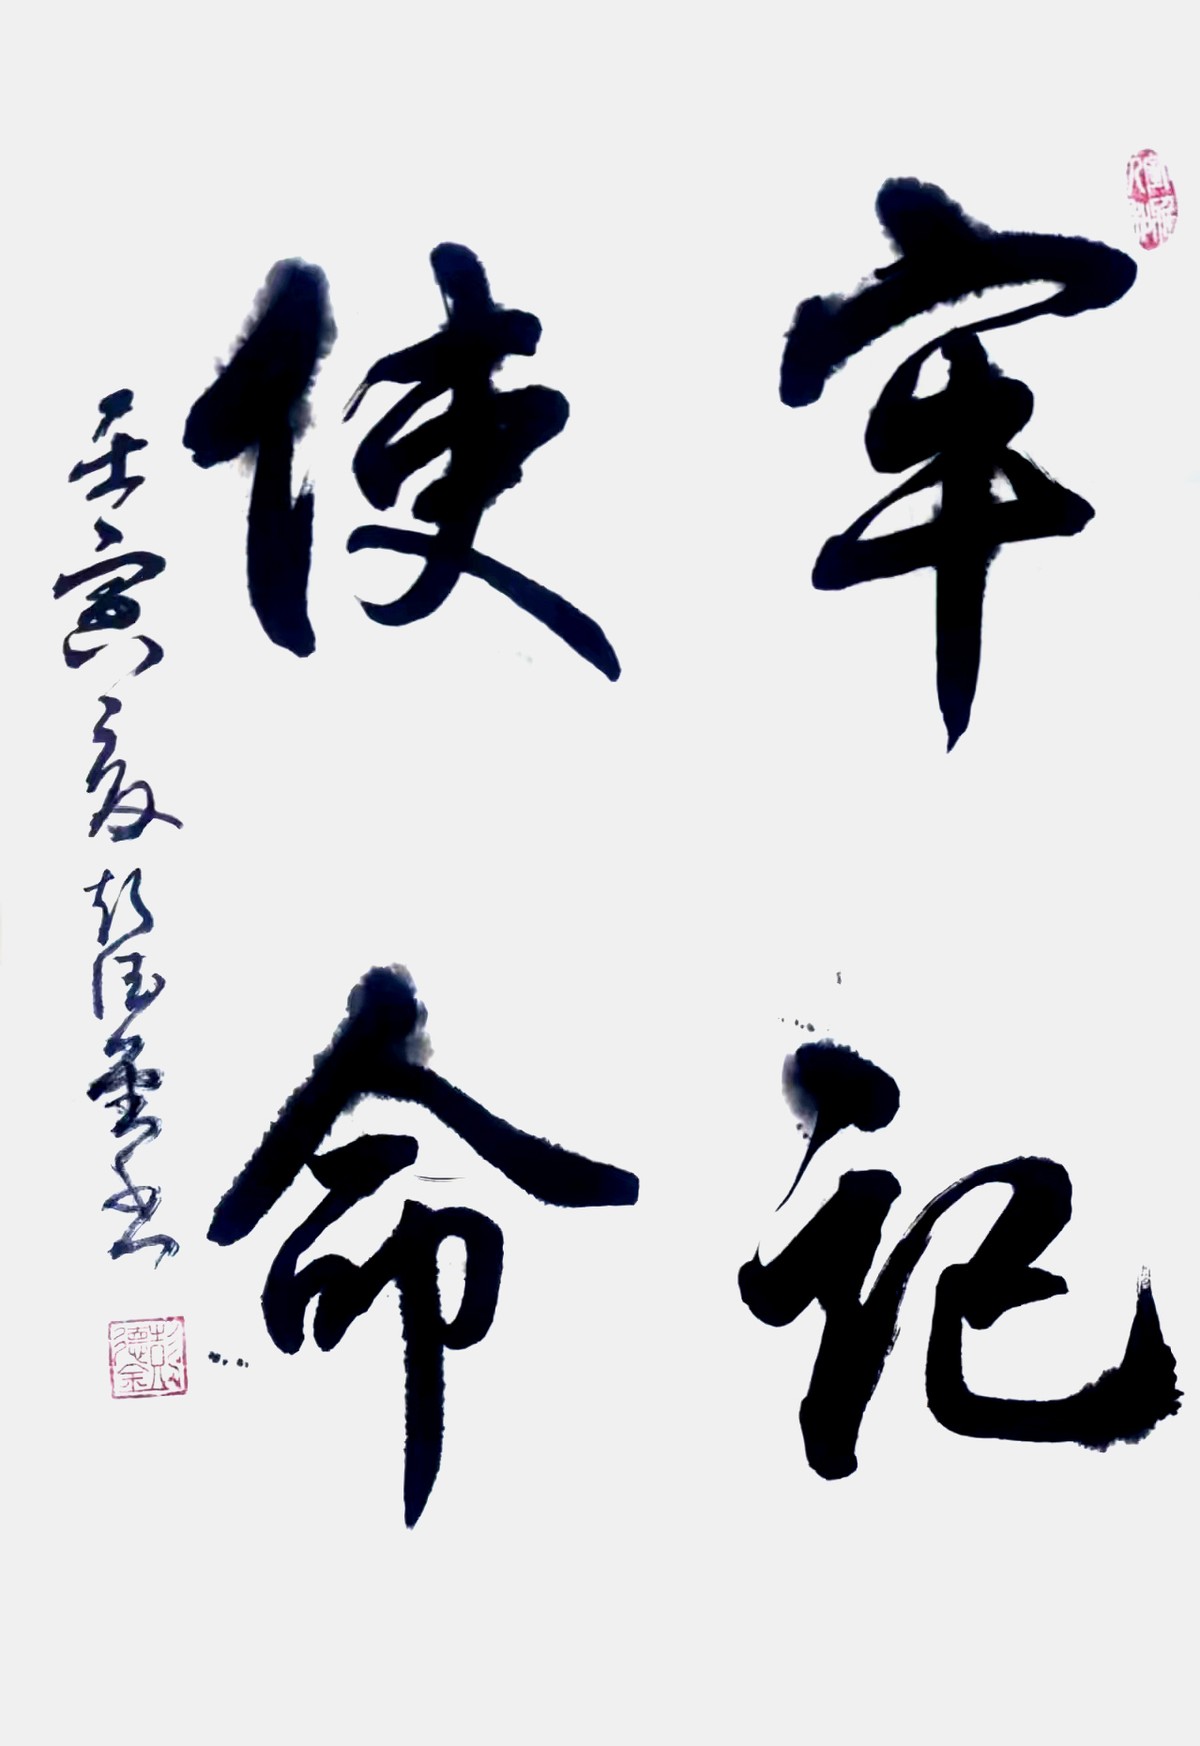 牢记
使命
壬寅夏彭德金书
彭德金印